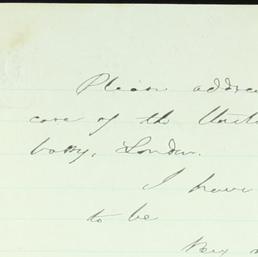 Please addre
care of the Unite
bassy, London.
I have
to be